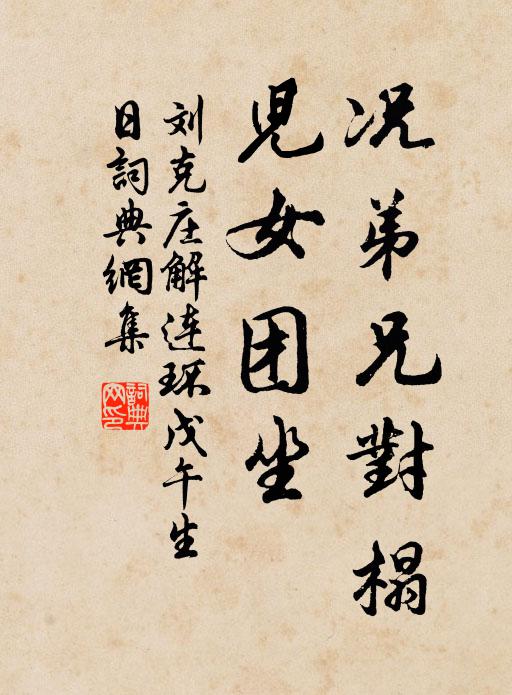 况弟兄對榻
兒女团坐
刘克庄解连环戊午生
日詞典網集
詞典網印